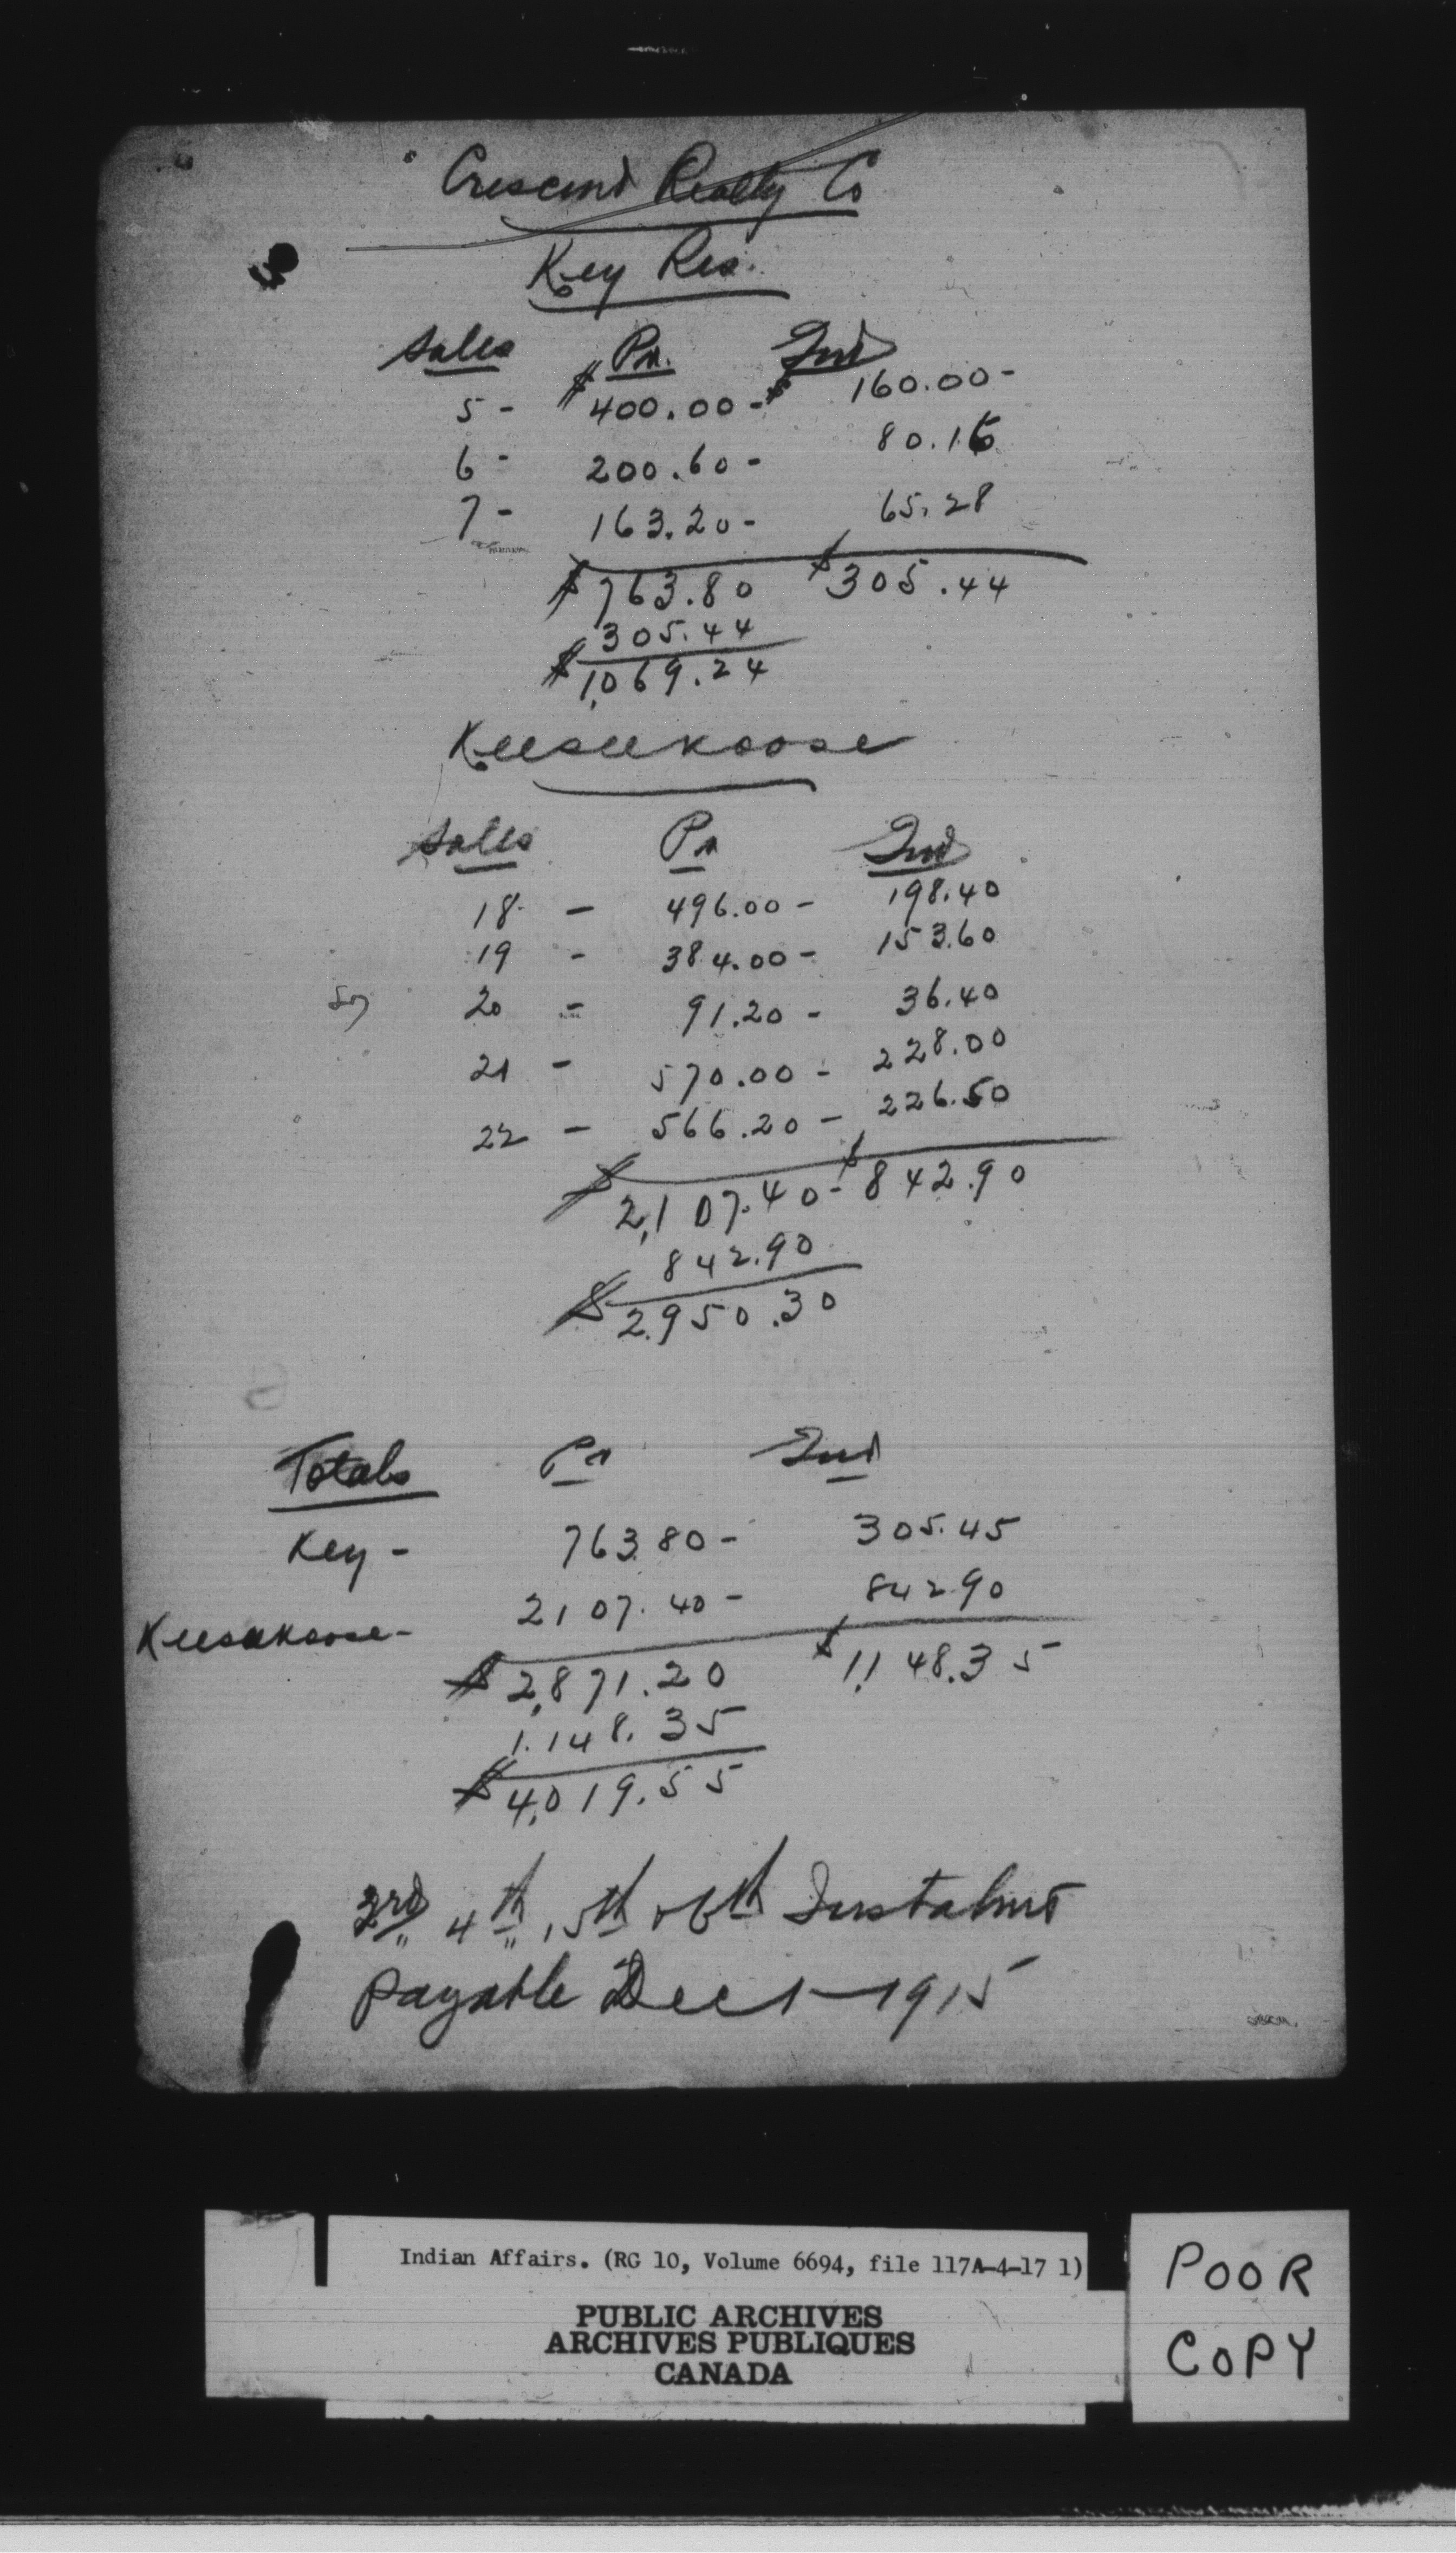 Crescent Realty Co
Key Res.
Sales Pr. Int
5 - $400.00 - $160.00 -
6 - 200.60 - 80.16
7 - 163.20 - 65.28
$763.80 $305.44
305.44
$1,069.24
Keeseekoose
Sales Pr Int
18 - 496.00 - 198.40
19 - 384.00 - 153.60
20 - 91.20 - 36.40
21 - 570.00 - 228.00
22 - 566.20 - 226.50
$2,107.40 - $842.90
842.90
$2,950.30
Totals Pr Int
Key - 763.80 - 305.45
Keesekoose - 2107.40 - 842.90
$2,871.20 $1,148.35
1.148.35
$4,019.55
3rd, 4th, 5th & 6th Instalmt
payable Dec 1 - 1915
Indian Affairs. (RG 10, Volume 6694, file 117A-4-17 1)
PUBLIC ARCHIVES
ARCHIVES PUBLIQUES
CANADA
POOR
COPY